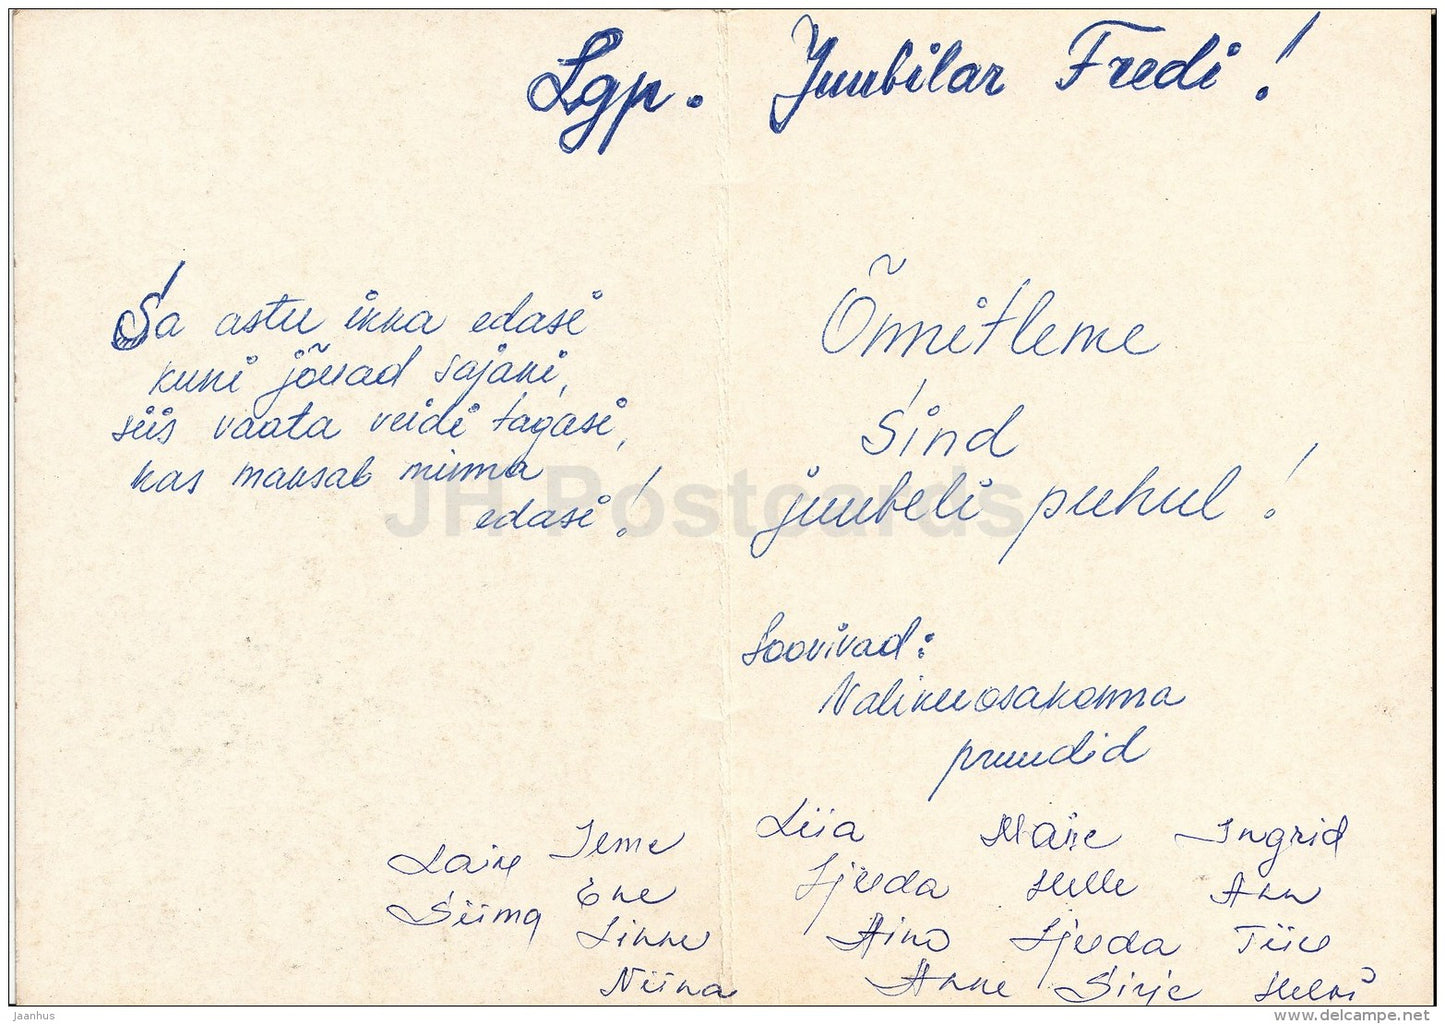 Lgp. Juubilar Fredi!
Sa astu ikka edasi
kuni jõuad sajani,
siis vaata veidi tagasi,
kas maksab minna
edasi!
Õnnitleme
Sind
juubeli puhul!
Soovivad:
Valikuosakonna
pruudid
Liia Maie Ingrid
Ljuda Helle Ann
Aino Ljuda Tiiu
Anne Sirje Helmi
Laine
Siima
Ene
Linne
Niina
JH Postcards
Jaanhus
www.delcampe.net